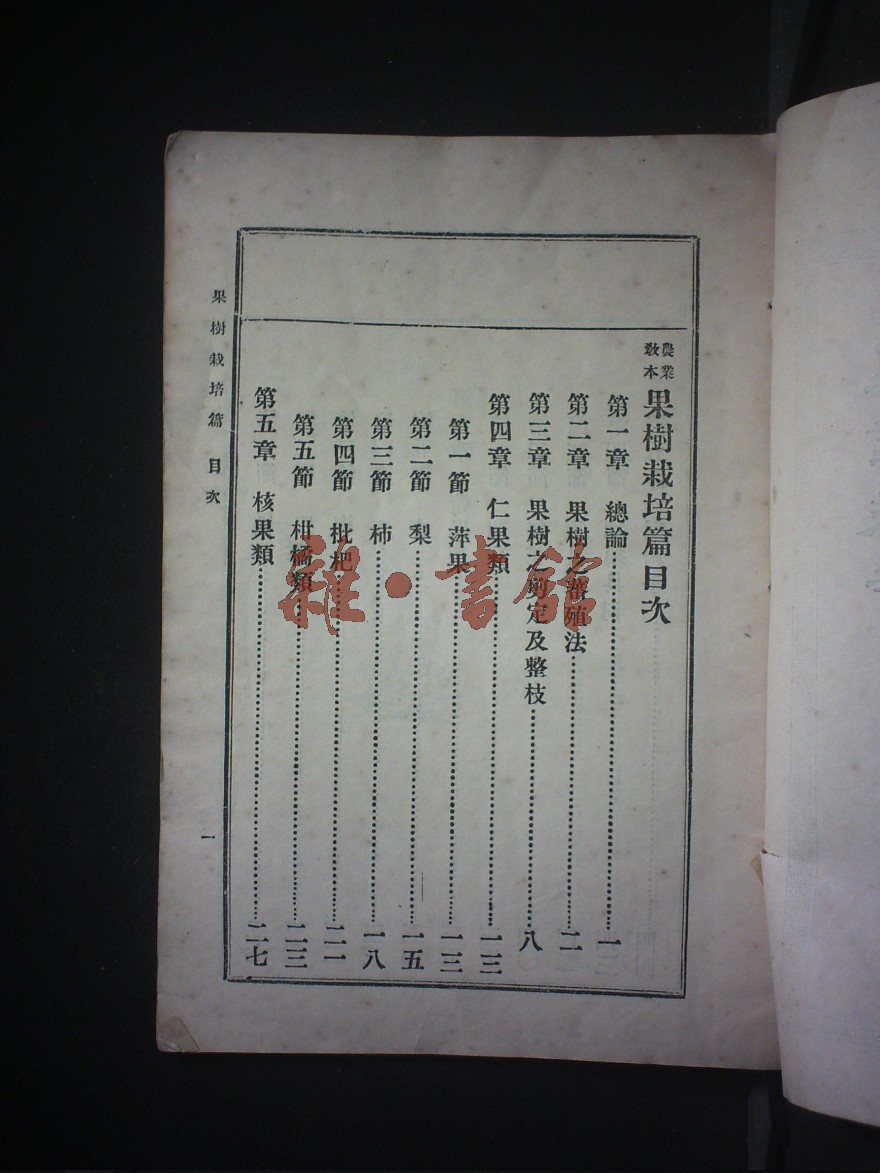 農業教本 果樹栽培篇目次
第一章 總論……一
第二章 果樹之蕃殖法……二
第三章 果樹之剪定及整枝……八
第四章 仁果類……一三
第一節 萍果……一三
第二節 梨……一五
第三節 柿……一八
第四節 枇杷……二一
第五節 柑橘類……二三
第五章 核果類……二七
果樹栽培篇 目次
一
雜·書館